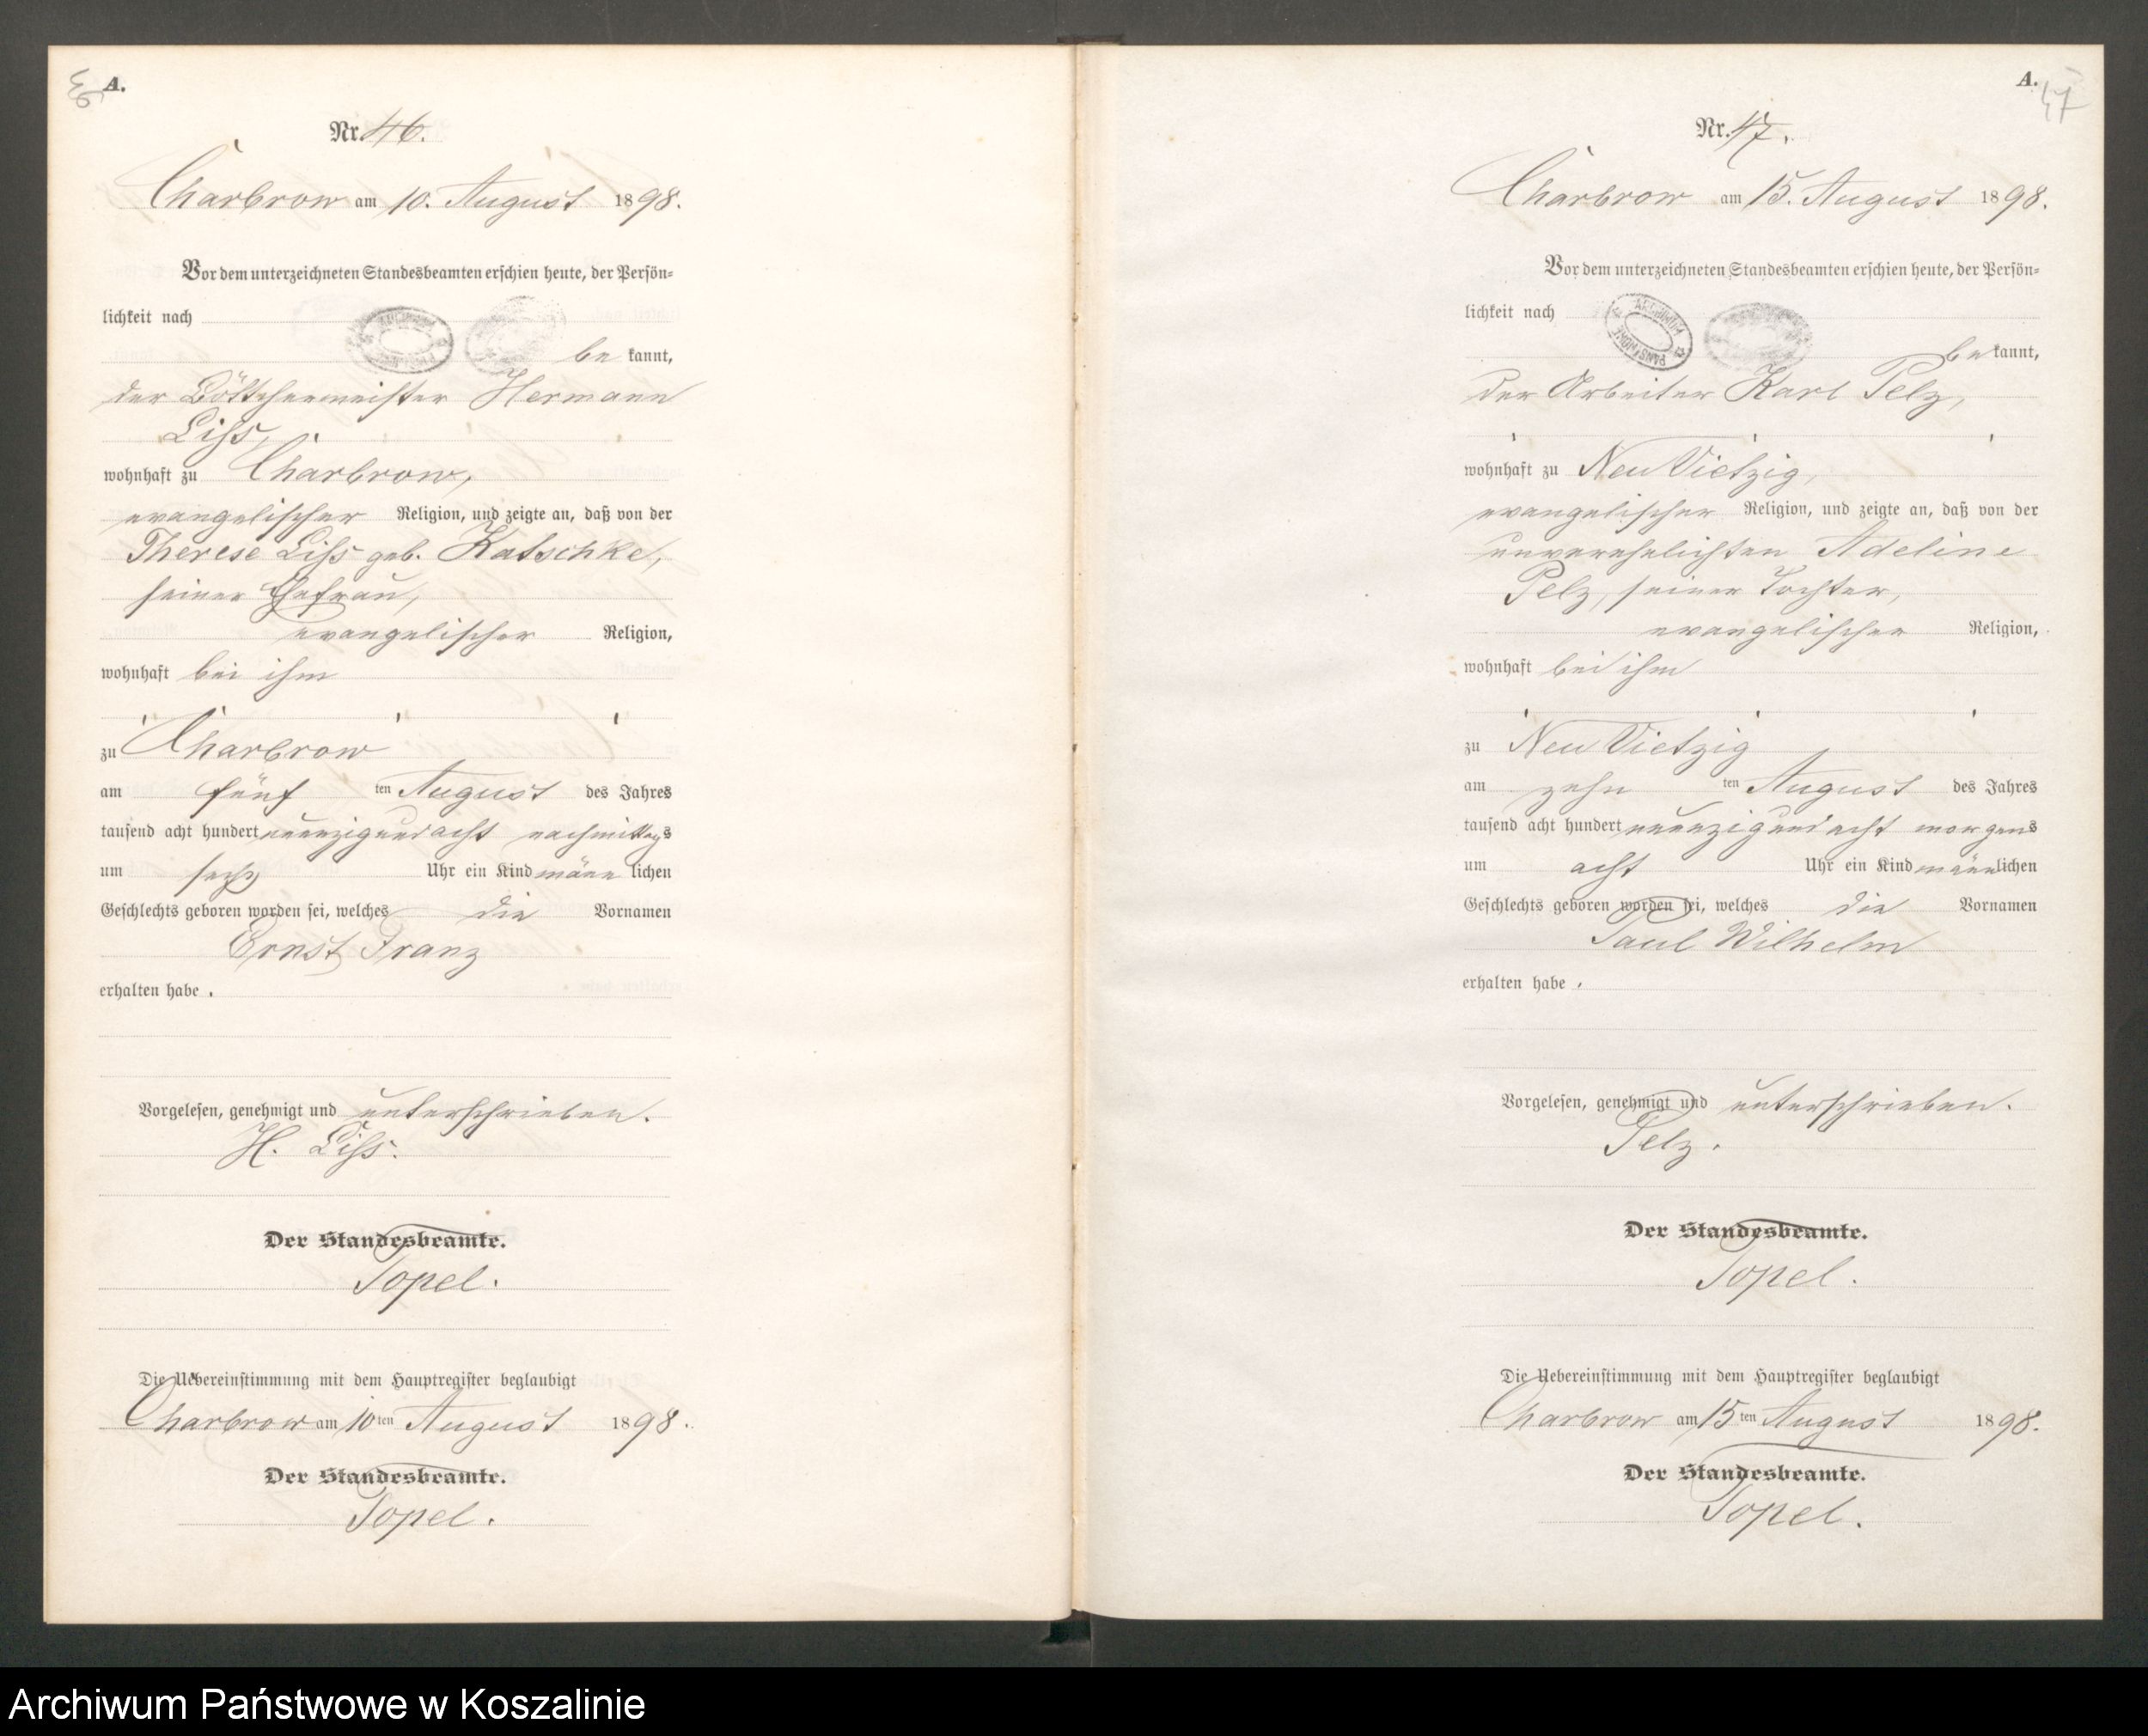 A.
Nr. 46.
Charbrow am 10. August 1898.
Vor dem unterzeichneten Standesbeamten erschien heute, der Persön-
lichkeit nach
be kannt,
der Böttchermeister Hermann
Liss,
wohnhaft zu Charbrow,
evangelischer Religion, und zeigte an, daß von der
Therese Liss geb. Katschke,
seiner Ehefrau,
evangelischer Religion,
wohnhaft bei ihm
zu Charbrow
am fünf ten August des Jahres
tausend acht hundert neunzig und acht nachmittags
um sechs Uhr ein Kind männ lichen
Geschlechts geboren worden sei, welches die Vornamen
Ernst Franz
erhalten habe.
Vorgelesen, genehmigt und unterschrieben.
H. Liss.
Der Standesbeamte.
Topel.
Die Uebereinstimmung mit dem Hauptregister beglaubigt
Charbrow am 10ten August 1898.
Der Standesbeamte.
Topel.
A.
47
Nr. 47.
Charbrow am 15. August 1898.
Vor dem unterzeichneten Standesbeamten erschien heute, der Persön-
lichkeit nach
ARCHIWUM PAŃSTWOWE
be kannt,
der Arbeiter Karl Pelz,
wohnhaft zu Neu Vietzig,
evangelischer Religion, und zeigte an, daß von der
unverehelichten Adeline
Pelz, seiner Tochter,
evangelischer Religion,
wohnhaft bei ihm
zu Neu Vietzig
am zehn ten August des Jahres
tausend acht hundert neunzig und acht morgens
um acht Uhr ein Kind männlichen
Geschlechts geboren worden sei, welches die Vornamen
Paul Wilhelm
erhalten habe.
Vorgelesen, genehmigt und unterschrieben.
Pelz.
Der Standesbeamte.
Topel.
Die Uebereinstimmung mit dem Hauptregister beglaubigt
Charbrow am 15ten August 1898.
Der Standesbeamte.
Topel.
Archiwum Państwowe w Koszalinie